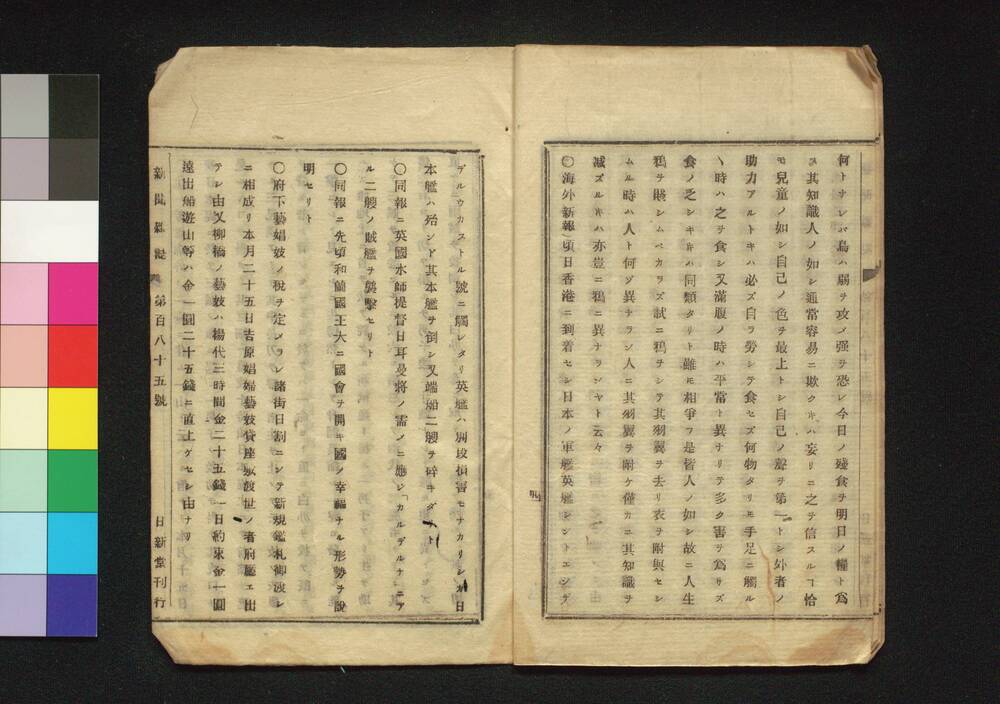 何トナレバ鳥ハ弱ヲ攻メ强ヲ恐レ今日ノ殘食ヲ明日ノ糧ト爲
ス其知識人ノ如シ通常容易ニ欺クキハ妄リニ之ヲ信スルヿ恰
モ兒童ノ如シ自己ノ色ヲ最上トシ自己ノ聲ヲ第一トシ外者ノ
助力アルトキハ必ズ自ラ勞シテ食セズ何物タリモ手足ニ觸ル
ヽ時ハ之ヲ食シ又滿腹ノ時ハ平常ト異ナリテ多ク害ヲ爲サズ
食ノ乏シキキハ同類タリト雖モ相爭フ是皆人ノ如シ故ニ人生
鴉ヲ賤シムベカラズ試ニ鴉ヲシテ其羽翼ヲ去リ衣ヲ附與セシ
ムル時ハ人ト何ゾ異ナラン人ニ其羽翼ヲ附ケ僅カニ其知識ヲ
减ズルキハ亦豈ニ鴉ニ異ナランヤト云々
〇海外新報頃日香港ニ到着セシ日本ノ軍艦英艦シントエンヂ
デルウカストル號ニ觸レタリ英艦ハ別段損害モナカリシガ日
本艦ハ殆ンド其本艦ヲ倒シ又端船二艘ヲ碎キタリト
〇同報ニ英國水師提督日耳曼將ノ需ノニ應ジ「カルデルナ」ニア
ル二艘ノ賊艦ヲ襲擊セリト
〇同報ニ先頃和蘭國王大ニ國會ヲ開キ國ノ幸福ナル形勢ヲ說
明セリト
〇府下藝娼妓ノ稅ヲ定メラレ諸街日割ニシテ新規鑑札御渡シ
ニ相成リ本月二十五日吉原娼婦藝妓貸座敷渡世ノ者府廳エ出
テシ由又柳橋ノ藝妓ハ揚代三時間金二十五錢一日約束金一圓
遠出船遊山等ハ金一圓二十五錢ニ直上グセシ由ナリ
新聞雜誌 第百八十五號 日新堂刊行